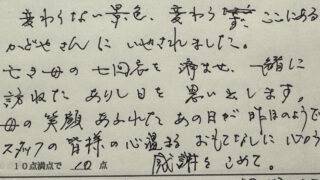 変わらない景色、変わらずここにある
かどやさんに いやされました。
亡き母の七回忌を済ませ、一緒に
訪れた ありし日を 思い出します。
母の笑顔あふれたあの日が昨日のようで
スタッフの皆様の心温まるおもてなしに心から
感謝をこめて。
10点満点で 10 点